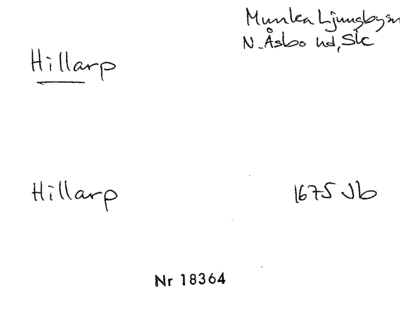 Munka Ljungby sn
N. Åsbo hd, Sk
Hillarp
Hillarp 1675 Jb
Nr 18364